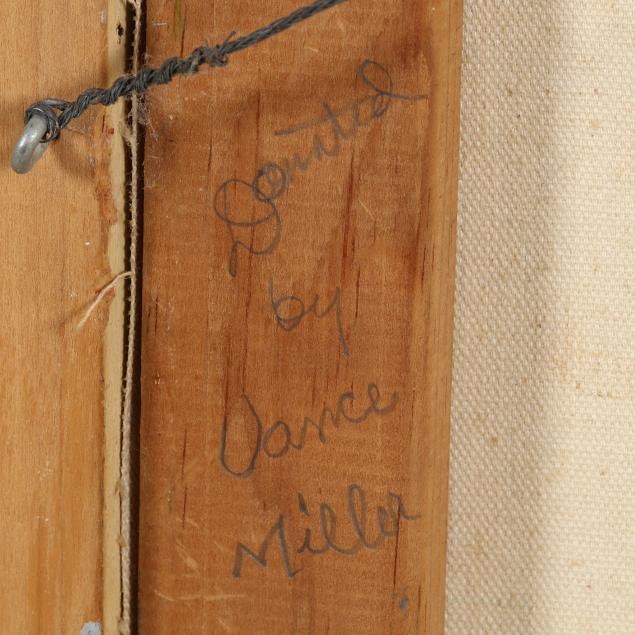 Donated
by
Vance
Miller